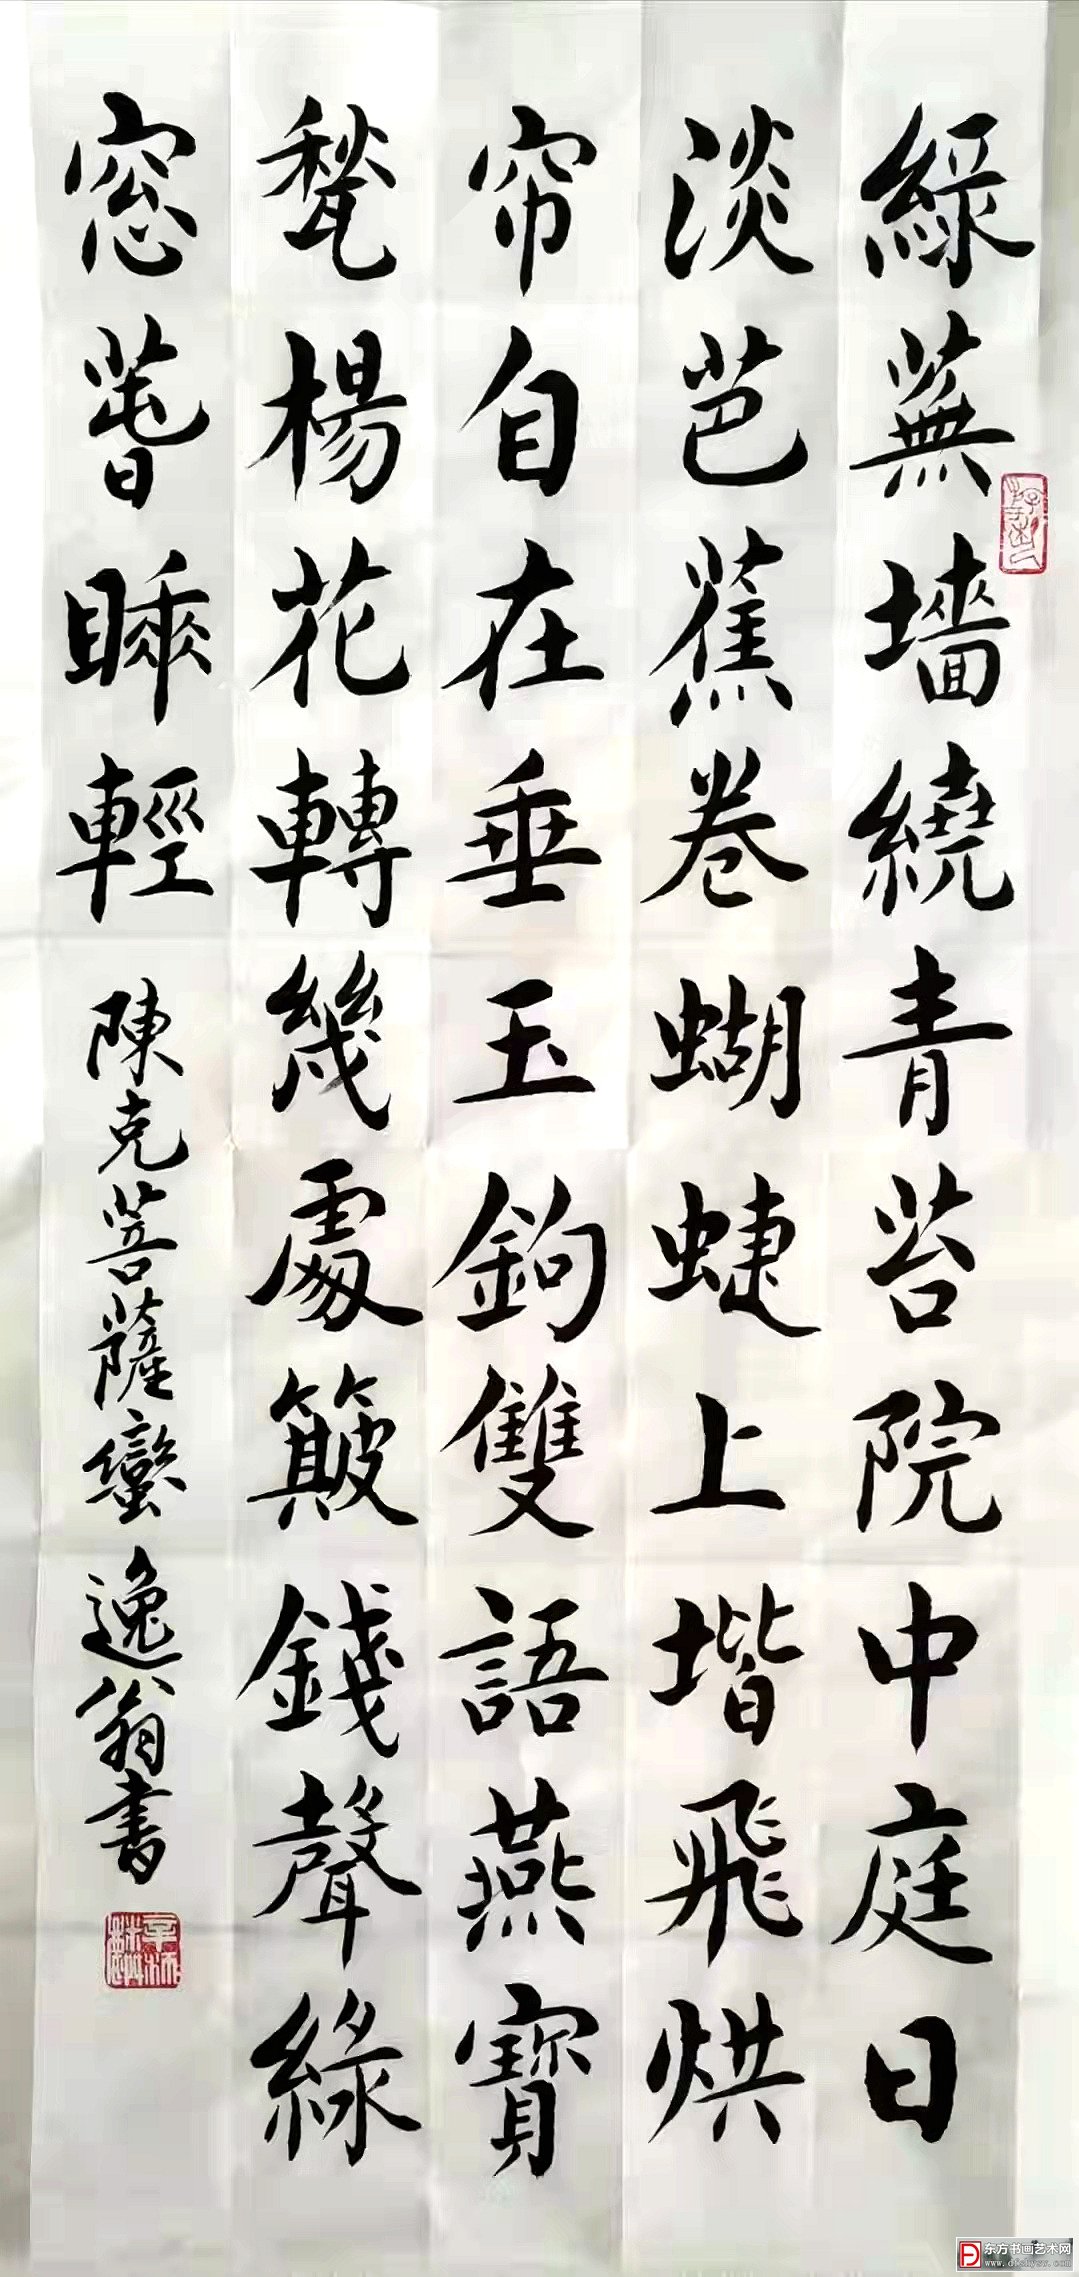 綠蕪墻繞青苔院中庭日
淡芭蕉卷蝴蝶上堦飛烘
帘自在垂玉鉤雙語燕寶
甃楊花轉幾處簸錢聲綠
窓萅睡輕 陳克菩薩蠻 逸翁書
东方书画艺术网